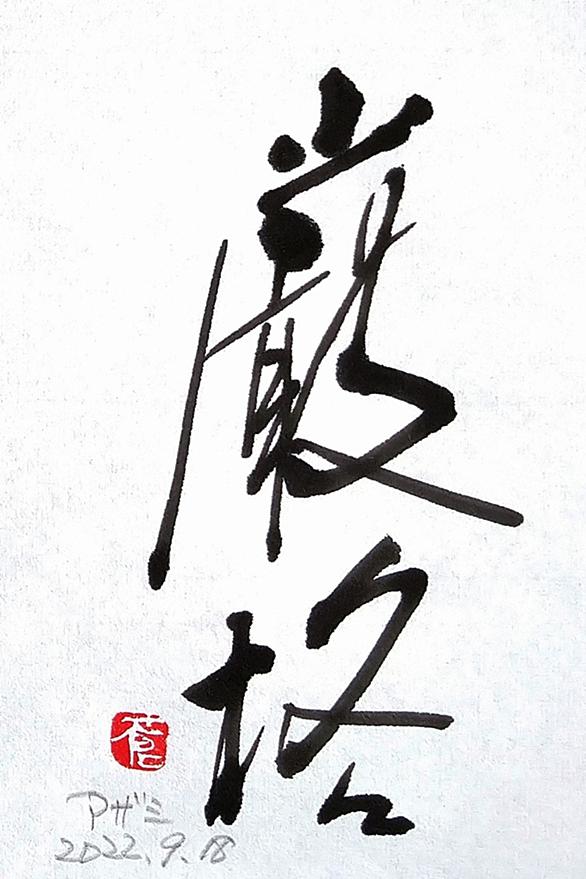 厳格
蒼
アザミ
2022.9.18